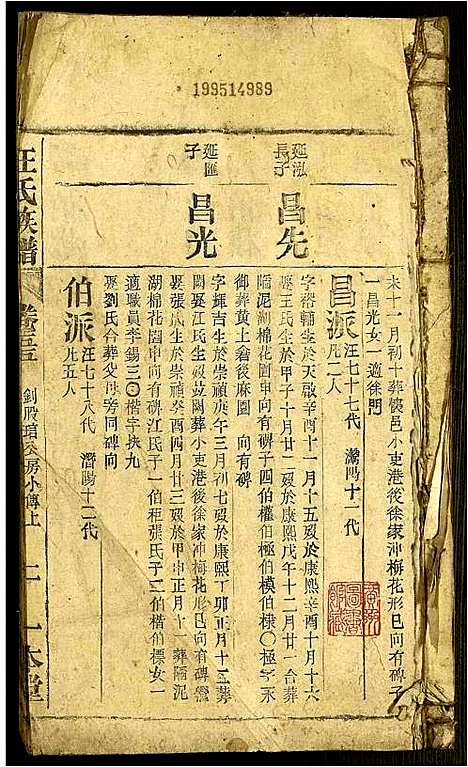 199514989
未十一月初十葬懷邑小吏港後徐家沖梅花形巳向有碑子
一昌光女一適徐門
昌派 汪七十七代 潛陽十一代
凡二人
延泓長子
昌先
字裕輔生於天啟辛酉十一月十五歿於康熙辛酉十月十六
娶王氏生於甲子十月廿二歿於康熙戊午十二月廿一合葬
陋泥湖棉花園申向有碑子四伯權伯極伯模伯棣〇極字永
御葬黃土嶺後麻園 向有碑
延匯子
昌光
字輝吉生於崇禎庚午三月初七歿於康熙丁卯正月十五葬
闕娶江氏生歿葬闕葬小吏港後徐家沖梅花形巳向有碑繼
娶張氏生於崇禎癸酉四月廿三歿於甲申正月十一葬陋泥
湖棉花園申向有碑江氏子一伯秬張氏子二伯楷伯標女一
適職員李錫三〇楷字扶九
娶劉氏合葬父母旁同碑向
伯派 汪七十八代 潛陽十二代
凡五人
汪氏族譜
卷三
釗股瑄公房小傳上
一本堂